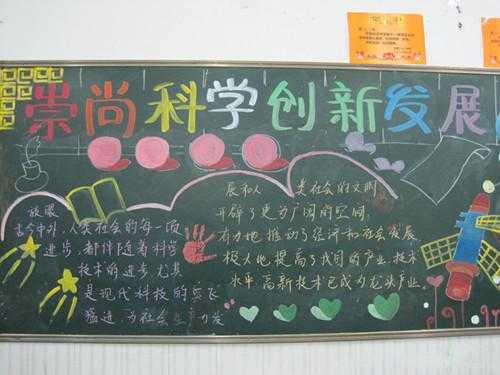 崇尚科学创新发展
放眼
古今中外,人类社会的每一项
进步,都伴随着科学
技术的进步尤其
是现代科技的突飞
猛进 为社会生产力发
展和人 类社会的文明
开辟了更为广阔的空间,
有力地推动了经济和社会发展
极大地提高了我国的产业技术
水平 高新技术已成为龙头产业.